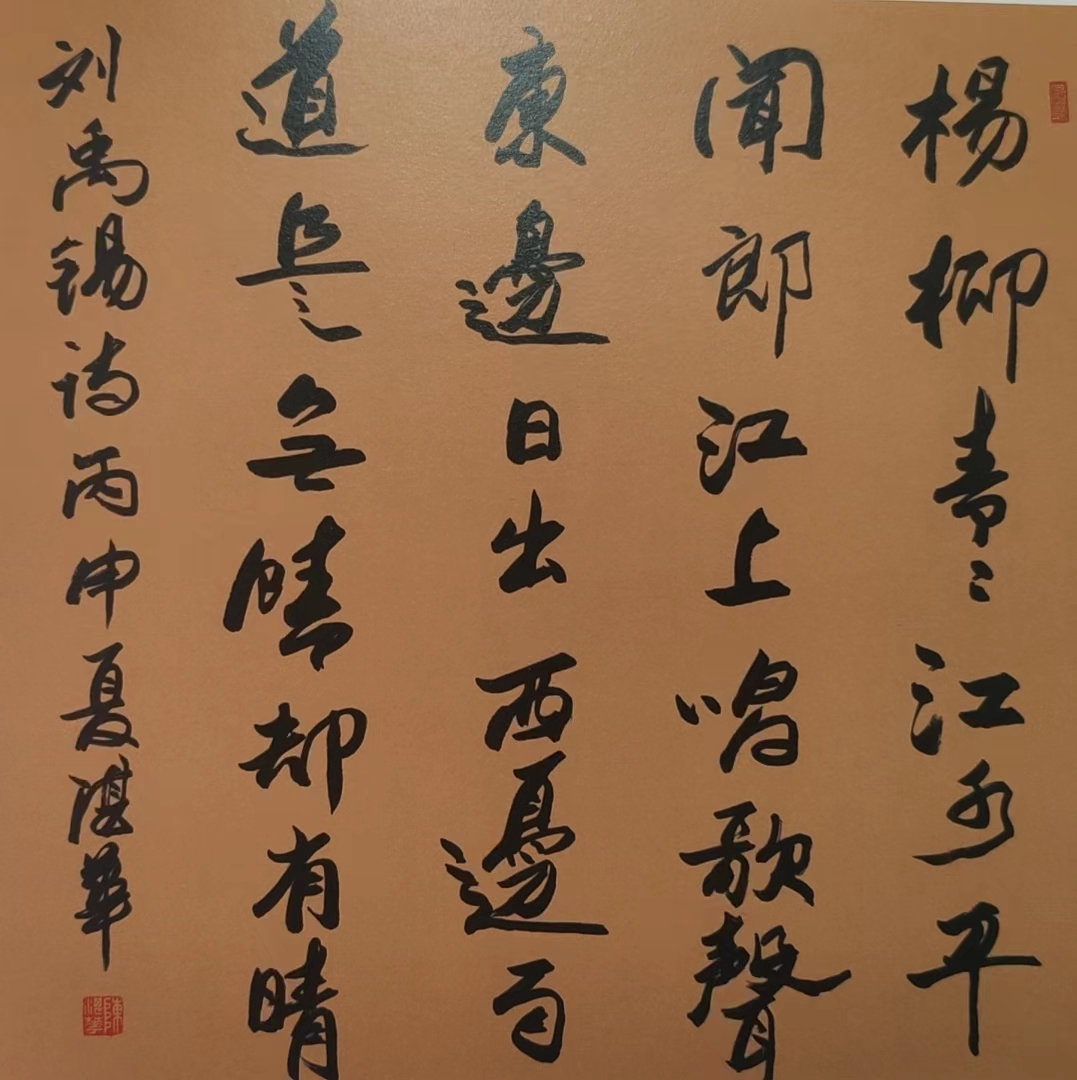 楊柳青〻江水平
聞郎江上唱歌聲
康邊日出西邊雨
道是無晴却有晴
刘禹锡诗丙申夏湛華
陳湛華